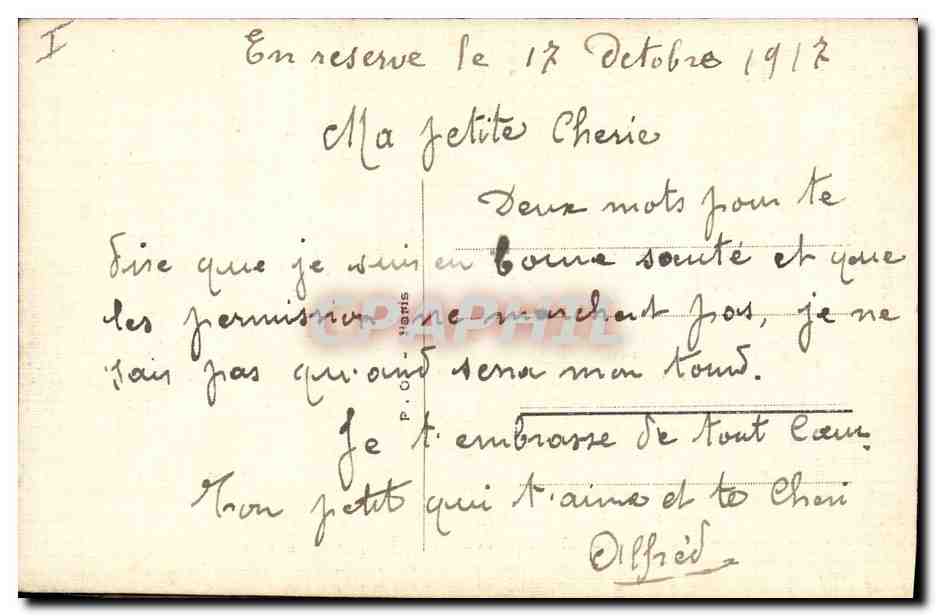 I
En reserve le 17 Octobre 1917
Ma petite Cherie
Deux mots pour te
dire que je suis en bonne santé et que
les permission ne marchent pas, je ne
sais pas quand sera mon tourd.
Je t'embrasse de tout Coeur.
Ton petit qui t'aime et te Cheri
Alfréd
CPAPHIL
Paris